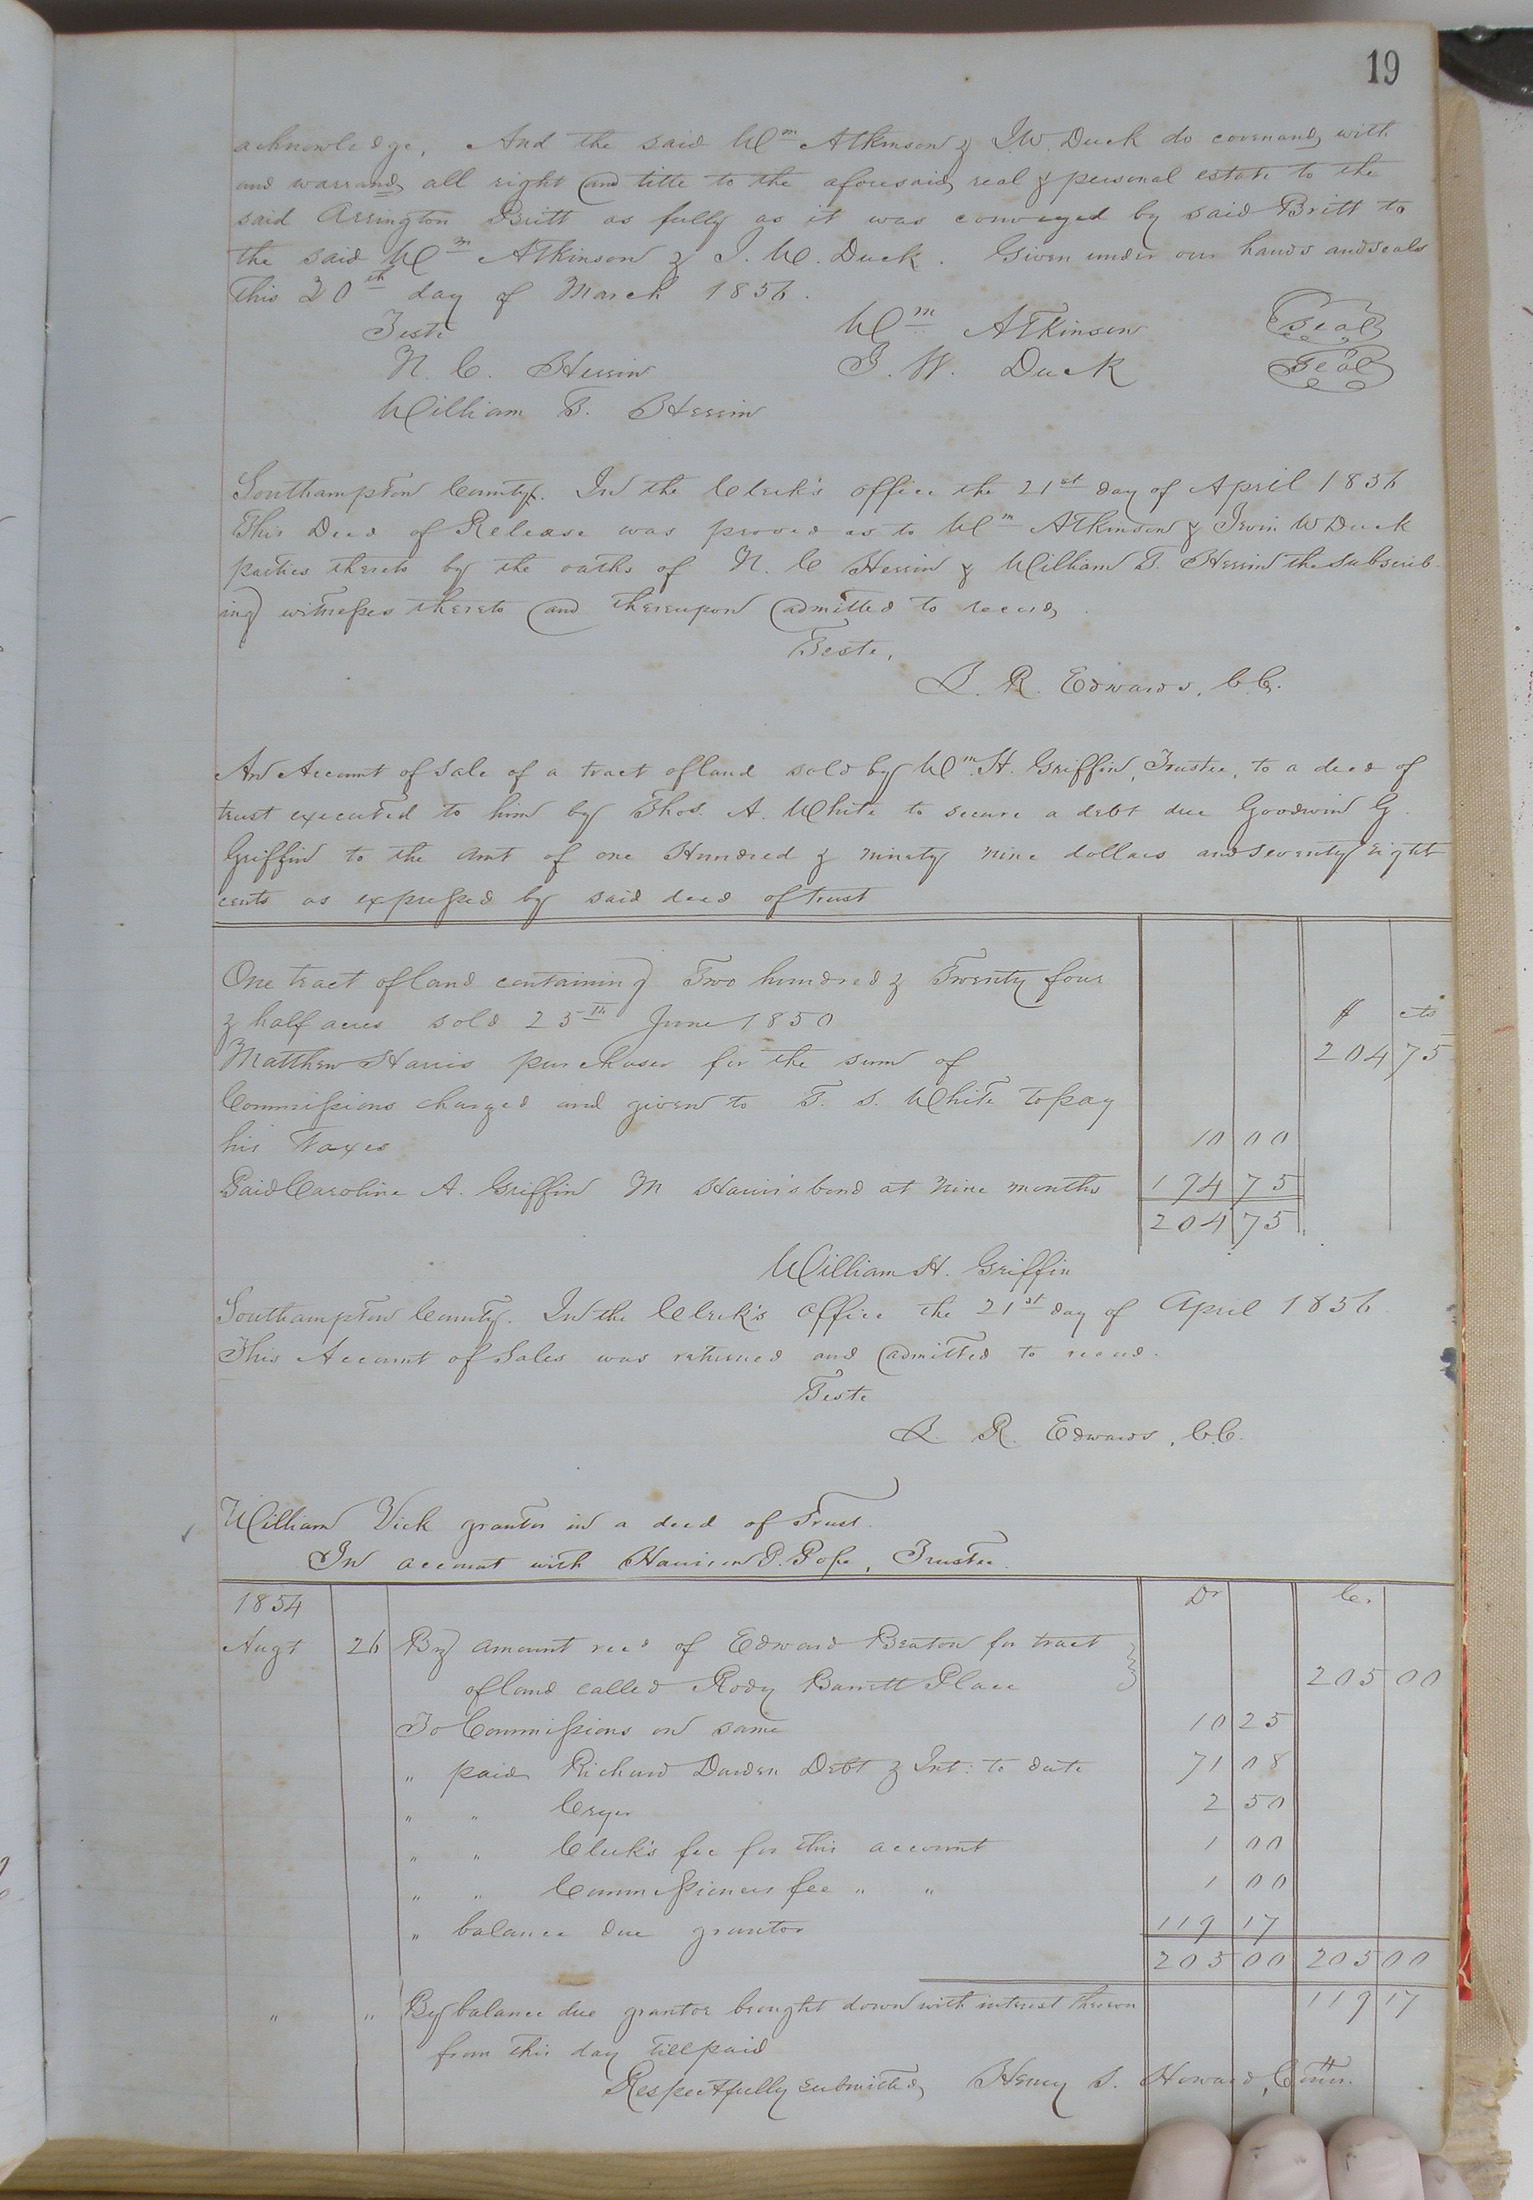 19
acknowledge, And the said Wm Atkinson & I.W. Duck do covenand, with
and warrand, all right and title to the aforesaid real & personal estate to the
said Arrington Britt as fully as it was conveyed by said Britt to
the said Wm Atkinson & I. W. Duck. Given under our hands and seals
this 20th day of March 1856.
Teste Wm Atkinson Seal
N. C. Herrin I. W. Duck Seal
William T. Herrin
Southampton County. In the Clerk's office the 21st day of April 1856
This Deed of Release was proved as to Wm Atkinson & Irvin W Duck
parties thereto by the oaths of N. C Herrin & William T. Herrin the subscrib-
ing witnesses thereto and thereupon admitted to record.
Teste,
L. R. Edwards, C.C.
An Account of Sale of a tract of land sold by Wm. H. Griffin, Trustee, to a deed of
trust executed to him by Thos. A. White to secure a debt due Goodwin G.
Griffin to the amt of one Hundred & ninety nine dollars and seventy eight
cents as expressed by said deed of trust
One tract of land containing Two hundred & Twenty four
& half acres sold 25th June 1850 $ cts
Matthew Harris purchaser for the sum of 204 75
Commissions charged and given to T. S. White to pay
his Taxes 10 00
Paid Caroline A. Griffin M Harris's bond at nine months 194 75
204 75
William H. Griffin
Southampton County. In the Clerk's Office the 21st day of April 1856
This Account of Sales was returned and admitted to record.
Teste
L. R. Edwards, C.C.
William Vick grantor in a deed of Trust.
In account with Harrison P. Pope, Trustee.
1854 Dr Cr
Augt 26 By amount recd of Edward Beaton for tract
of land called Rody Barrett Place 205 00
To Commissions on same 10 25
" paid Richard Darden Debt & Int: to date 71 08
" " Cryer 2 50
" " Clerk's fee for this account 1 00
" " Commissioners fee " " 1 00
" balance due grantor 119 17
205 00 205 00
" " By balance due grantor brought down with interest thereon 119 17
from this day till paid
Respectfully submitted, Henry S. Howard, Comr.